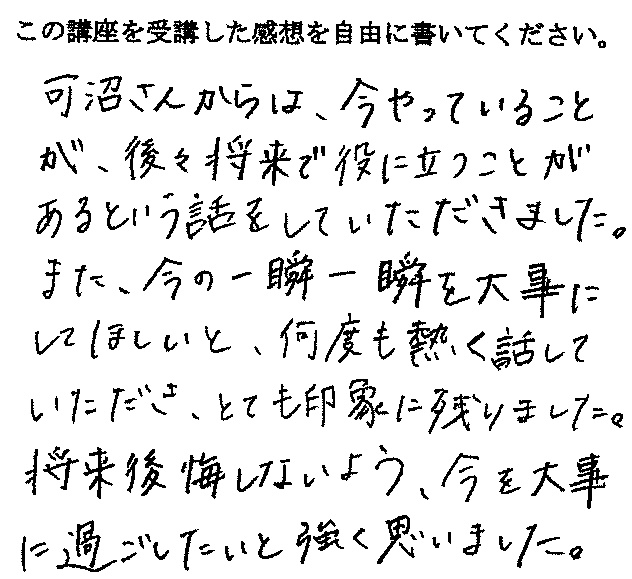 この講座を受講した感想を自由に書いてください。
可沼さんからは、今やっていること
が、後々将来で役に立つことが
あるという話をしていただきました。
また、今の一瞬一瞬を大事に
してほしいと、何度も熱く話して
いただき、とても印象に残りました。
将来後悔しないよう、今を大事
に過ごしたいと強く思いました。